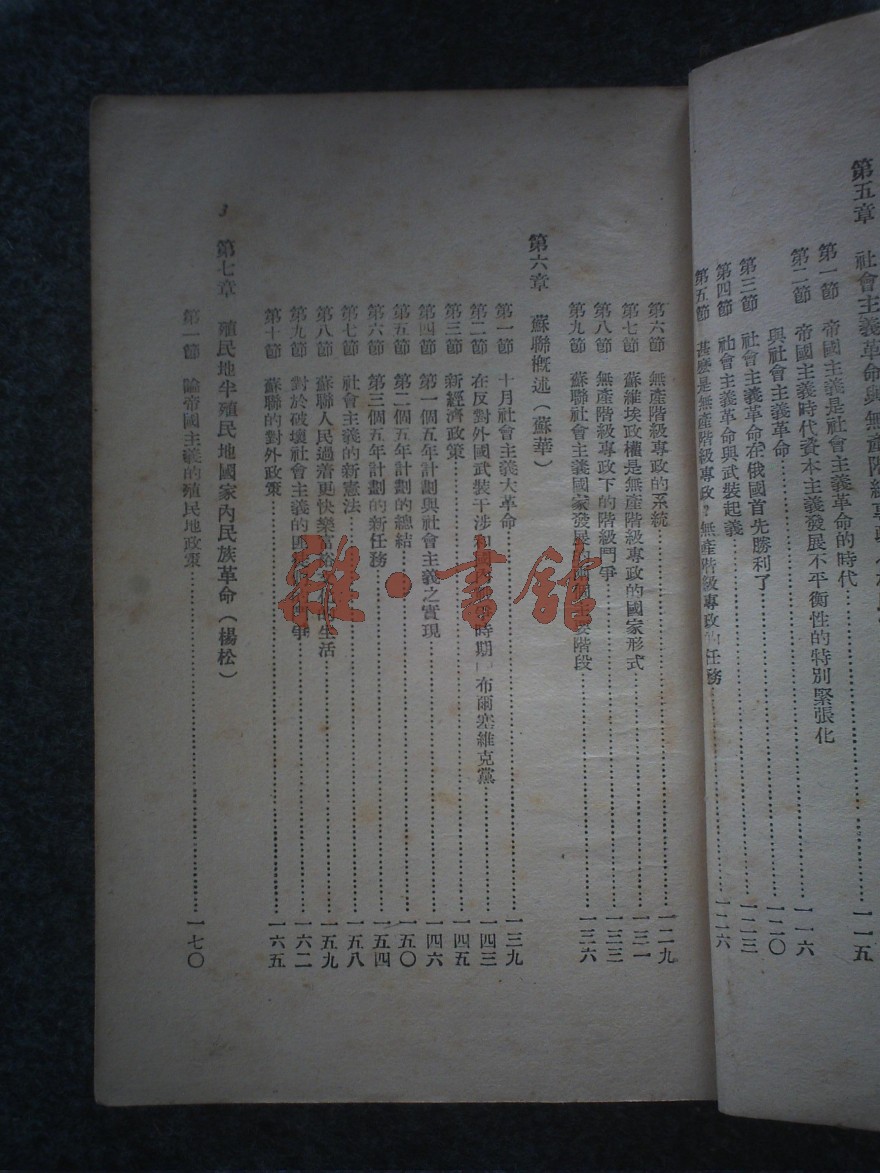 第五章 社會主義革命與無產階級專政
第一節 帝國主義是社會主義革命的時代……一一五
第二節 帝國主義時代資本主義發展不平衡性的特別緊張化
與社會主義革命……一一六
第三節 社會主義革命在俄國首先勝利了……一二〇
第四節 社會主義革命與武裝起義……一二三
第五節 甚麼是無產階級專政?無產階級專政的任務……一二六
第六節 無產階級專政的系統……一二九
第七節 蘇維埃政權是無產階級專政的國家形式……一三一
第八節 無產階級專政下的階級鬥爭……一三三
第九節 蘇聯社會主義國家發展的兩個主要階段……一三六
第六章 蘇聯概述(蘇華)
第一節 十月社會主義大革命……一三九
第二節 在反對外國武裝干涉和國內戰爭時期的布爾塞維克黨……一四三
第三節 新經濟政策……一四五
第四節 第一個五年計劃與社會主義之實現……一四六
第五節 第二個五年計劃的總結……一五〇
第六節 第三個五年計劃的新任務……一五四
第七節 社會主義的新憲法……一五八
第八節 蘇聯人民過着更快樂富裕文化的生活……一五九
第九節 對於破壞社會主義的匪徒的鬥爭……一六二
第十節 蘇聯的對外政策……一六五
3
第七章 殖民地半殖民地國家內民族革命(楊松)
第一節 論帝國主義的殖民地政策……一七〇
雜·書館